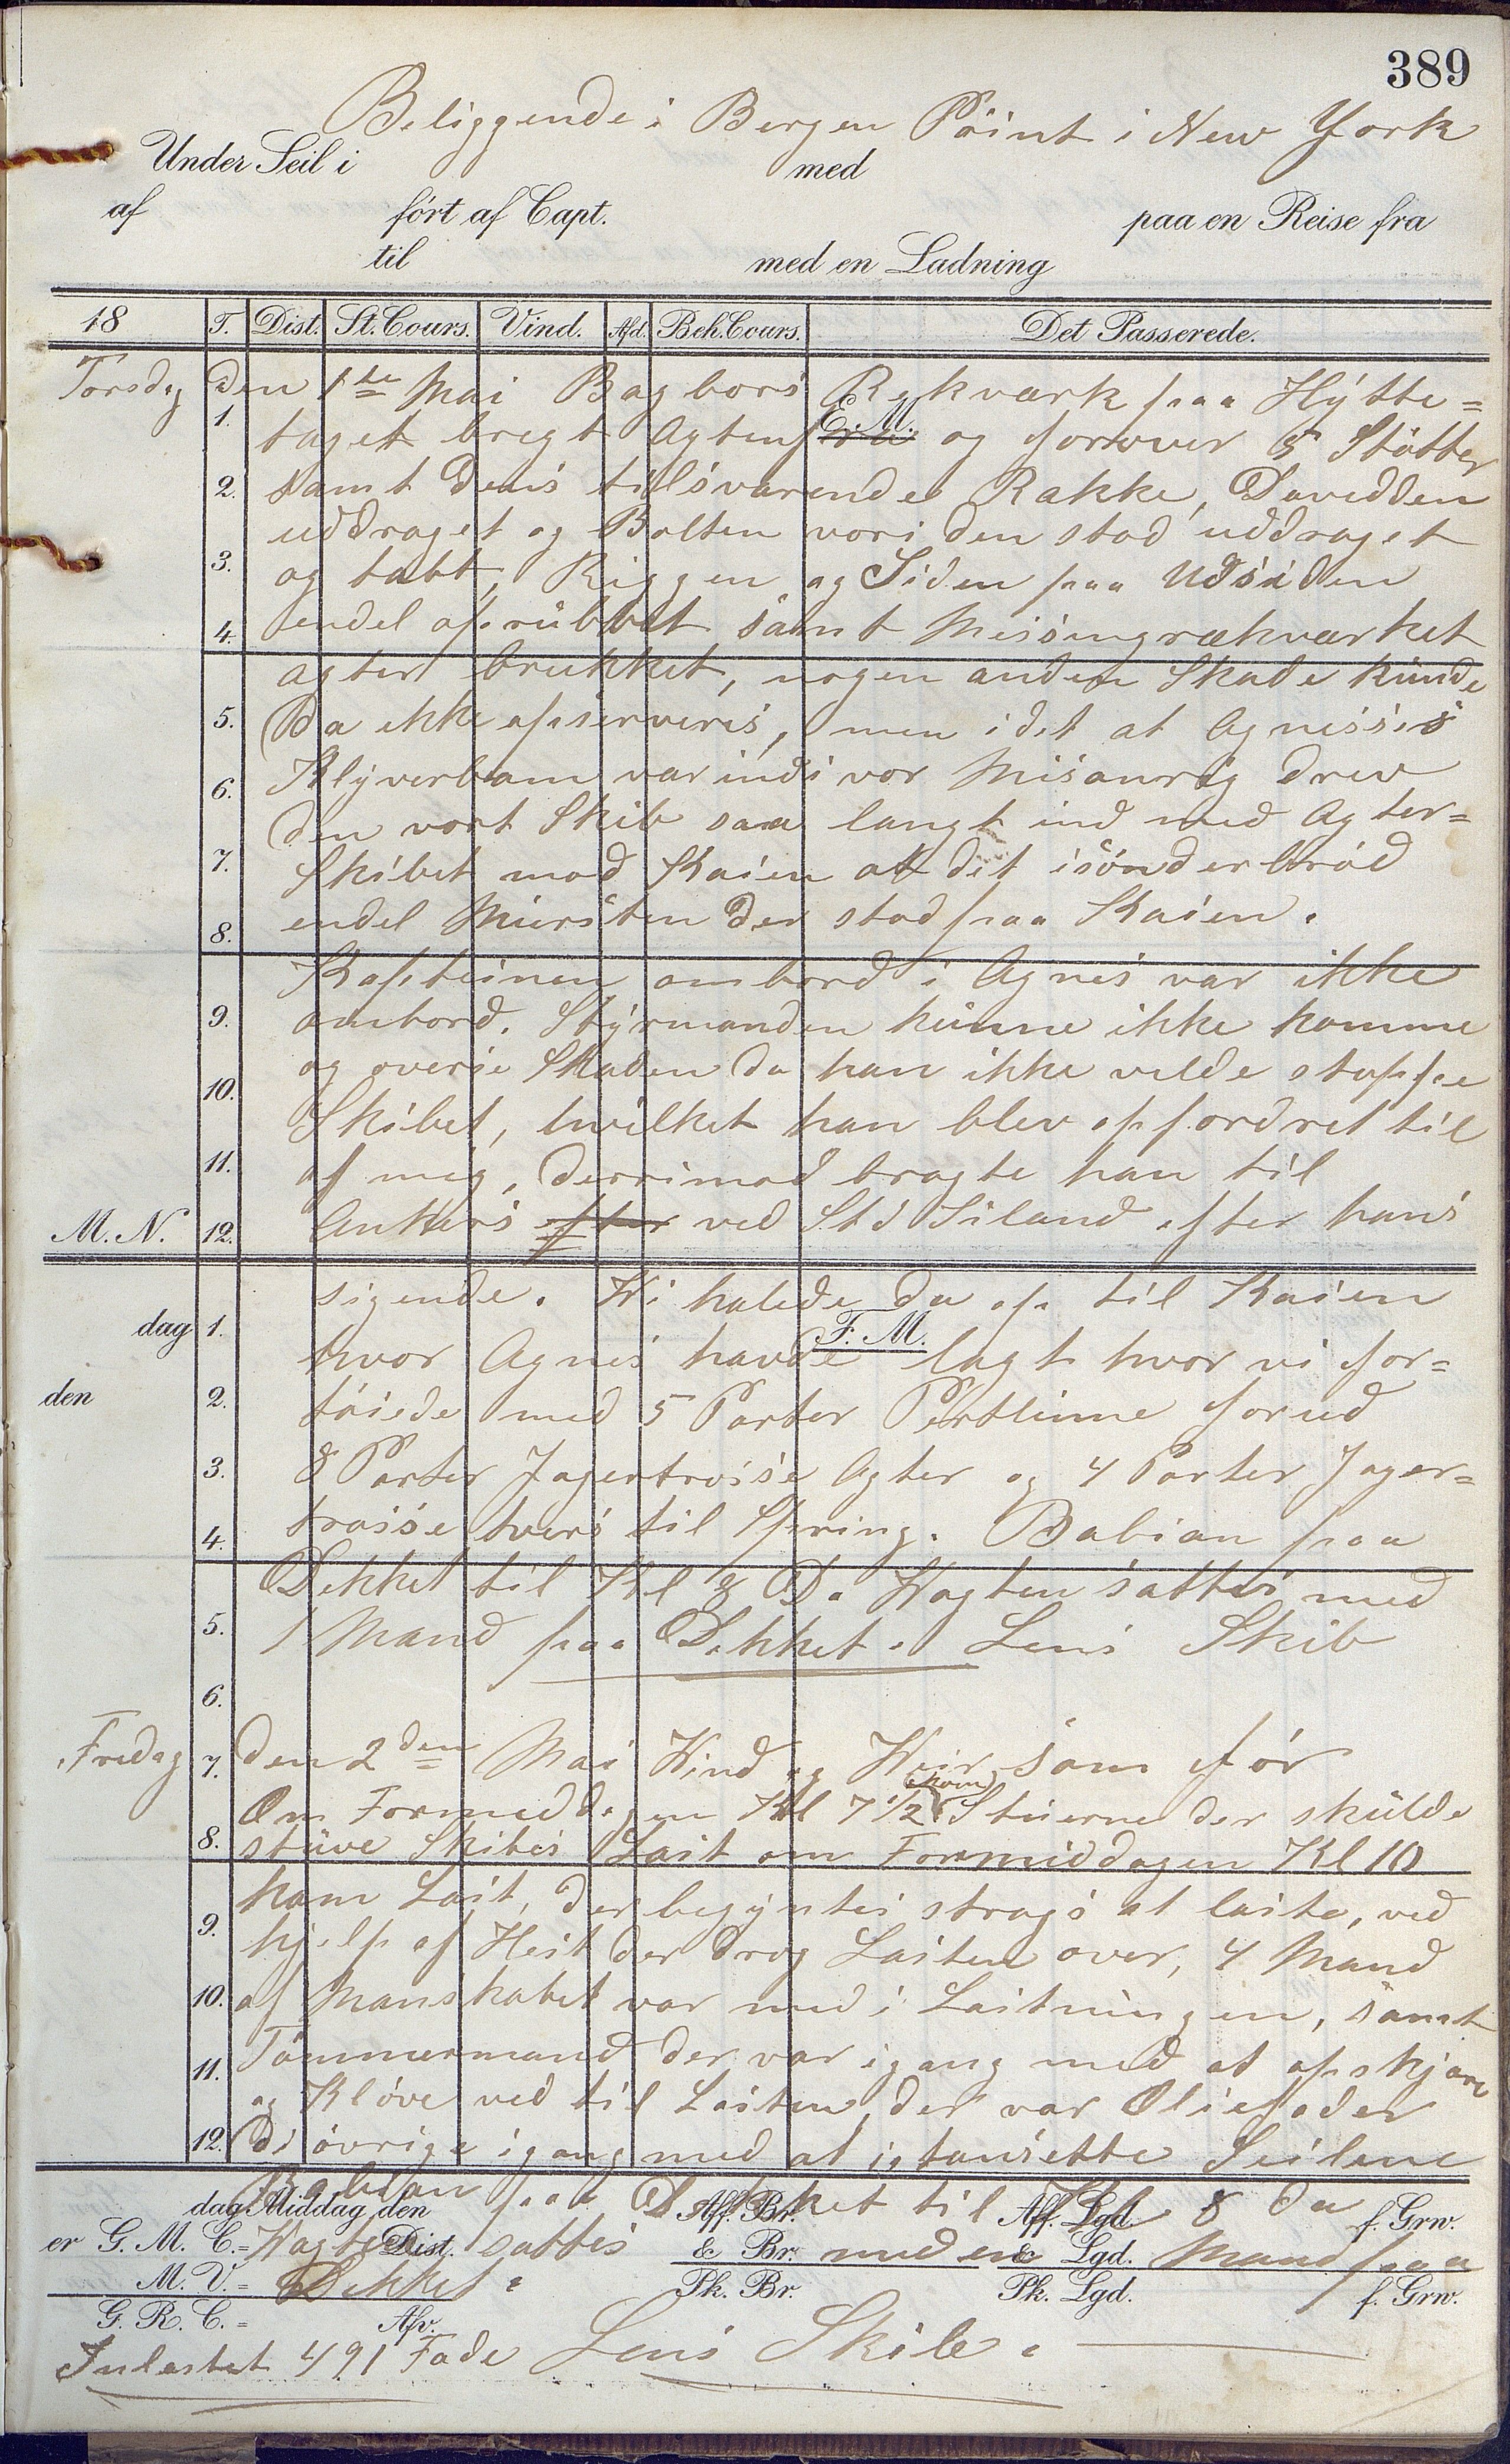 389
Beliggende i Bergen Point i New York
Under Seil i med
af ført af Capt. paa en Reise fra
til med en Ladning
18 T. Dist. St. Cours. Vind. Afd. Beh. Cours. Det Passerede.
Torsdag den 1ste Mai Bagbors Rekværk paa Hytte=
E. M.
1. taget bregt Agten fra og forover 5 Støtter
2. samt dens tilsvarende Rakke, Davidden
uddraget og Bolten vori den stod uddraget
3. og tabt, Riggen og Siden paa Udsiden
4. endel afrubbet samt Messingrækværket
agter brukket, nogen anden Skade kunde
5. da ikke opserveris, men idet at Agnesses
6. Klyverbom var indi vor Misanrig drev
den vort Skib saa langt ind med Agter=
7. Skibet mod Kaien at det isønderbrød
8. endel Mursten der stod paa Kaien.
Kapteinen ombord i Agnes var ikke
9. ombord. Styrmanden kunne ikke komme
og overse Skaden da han ikke vilde stoppe
10. Skibet, hvilket han blev opfordret til
11. af mig, derrimod bragte han til
M. N. 12. Ankers efter ved Std Iiland efter hans
sigende. Wi halede da op til Kaien
F. M.
dag 1. hvor Agnes havde lagt hvor vi for=
den 2. tøiede med 5 Parter Pertlinne forud
3. 8 Parter Jagertrosse Agter og 4 Parter Jager=
4. trosse tvers til Spring. Babian paa
Dekket til Kl 8 Da Wagten sattes med
5. 1 Mand paa Dekket. Lens Skib
6.
Fredag 7. den 2den Mai Wind og Weir som før
kom
Om Formeddagen Kl 7 1/2 Stuerne der skulde
8. stuve Skibes Last om Formiddagen Kl 10
kom Last, der begyntes strags at laste, ved
9. hjelp af Hest der drog Lasten over, 4 Mand
10. af Manskabet var med i Lastningen, samt
Tømmermand der var igang med at opskjære
11. og Kløve ved til Lasten, der var Oliefader
12. di øvrige igang med at istansette Seilene
Babian paa Dekket til Kl 8 da
dag Middag den Aff. Br. Aff. Lgd. f. Grw.
er G. M. C.= Wagten Dist. sattes & Br. med en & Lgd. Mand paa
M. V.= Dekket. Pk. Br. Pk. Lgd. f. Grw.
G. R. C.= Afv.
Inlastet 491 Fade Lens Skib.